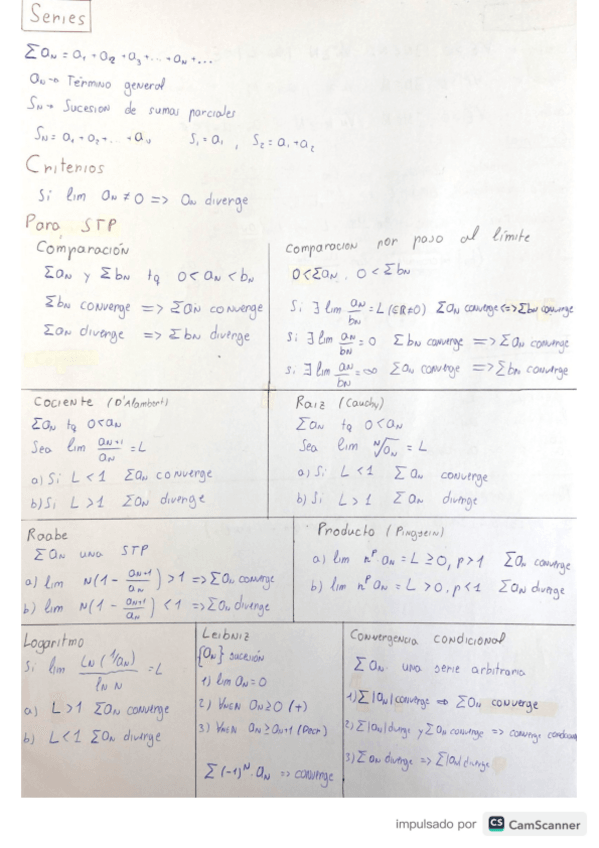 Series
Σ aₙ = a₁ + a₂ + a₃ + ... + aₙ + ...
aₙ → Término general
Sₙ → Sucesion de sumas parciales
Sₙ = a₁ + a₂ + ... + aₙ S₁ = a₁ , S₂ = a₁ + a₂
Criterios
Si lim aₙ ≠ 0 => aₙ diverge
Para STP
Comparación
Σaₙ y Σbₙ tq 0 < aₙ < bₙ
Σbₙ converge => Σaₙ converge
Σaₙ diverge => Σbₙ diverge
Comparacion por paso al límite
0 < Σaₙ . 0 < Σbₙ
Si ∃ lim aₙ/bₙ = L (∈ℝ≠0) Σaₙ converge <=> Σbₙ converge
Si ∃ lim aₙ/bₙ = 0 Σbₙ converge => Σaₙ converge
Si ∃ lim aₙ/bₙ = ∞ Σaₙ converge => Σbₙ converge
Cociente (D'Alambert)
Σaₙ tq 0 < aₙ
Sea lim aₙ₊₁/aₙ = L
a) Si L < 1 Σaₙ converge
b) Si L > 1 Σaₙ diverge
Raiz (Cauchy)
Σaₙ tq 0 < aₙ
Sea lim ᴺ√aₙ = L
a) Si L < 1 Σaₙ converge
b) Si L > 1 Σaₙ diverge
Raabe
Σaₙ una STP
a) lim N(1 - aₙ₊₁/aₙ) > 1 => Σaₙ converge
b) lim N(1 - aₙ₊₁/aₙ) < 1 => Σaₙ diverge
Producto (Pringsein)
a) lim nᵖ aₙ = L ≥ 0, p > 1 Σaₙ converge
b) lim nᵖ aₙ = L > 0, p < 1 Σaₙ diverge
Logaritmo
Si lim Ln(1/aₙ)/ln N = L
a) L > 1 Σaₙ converge
b) L < 1 Σaₙ diverge
Leibniz
{aₙ} sucesión
1) lim aₙ = 0
2) ∀n∈N aₙ ≥ 0 (+)
3) ∀n∈N aₙ ≥ aₙ₊₁ (Decr)
Σ (-1)ᴺ · aₙ => converge
Convergencia condicional
Σaₙ una serie arbitraria
1) Σ|aₙ| converge => Σaₙ converge
2) Σ|aₙ| diverge y Σaₙ converge => converge
3) Σaₙ diverge => Σ|aₙ| diverge
impulsado por CS CamScanner